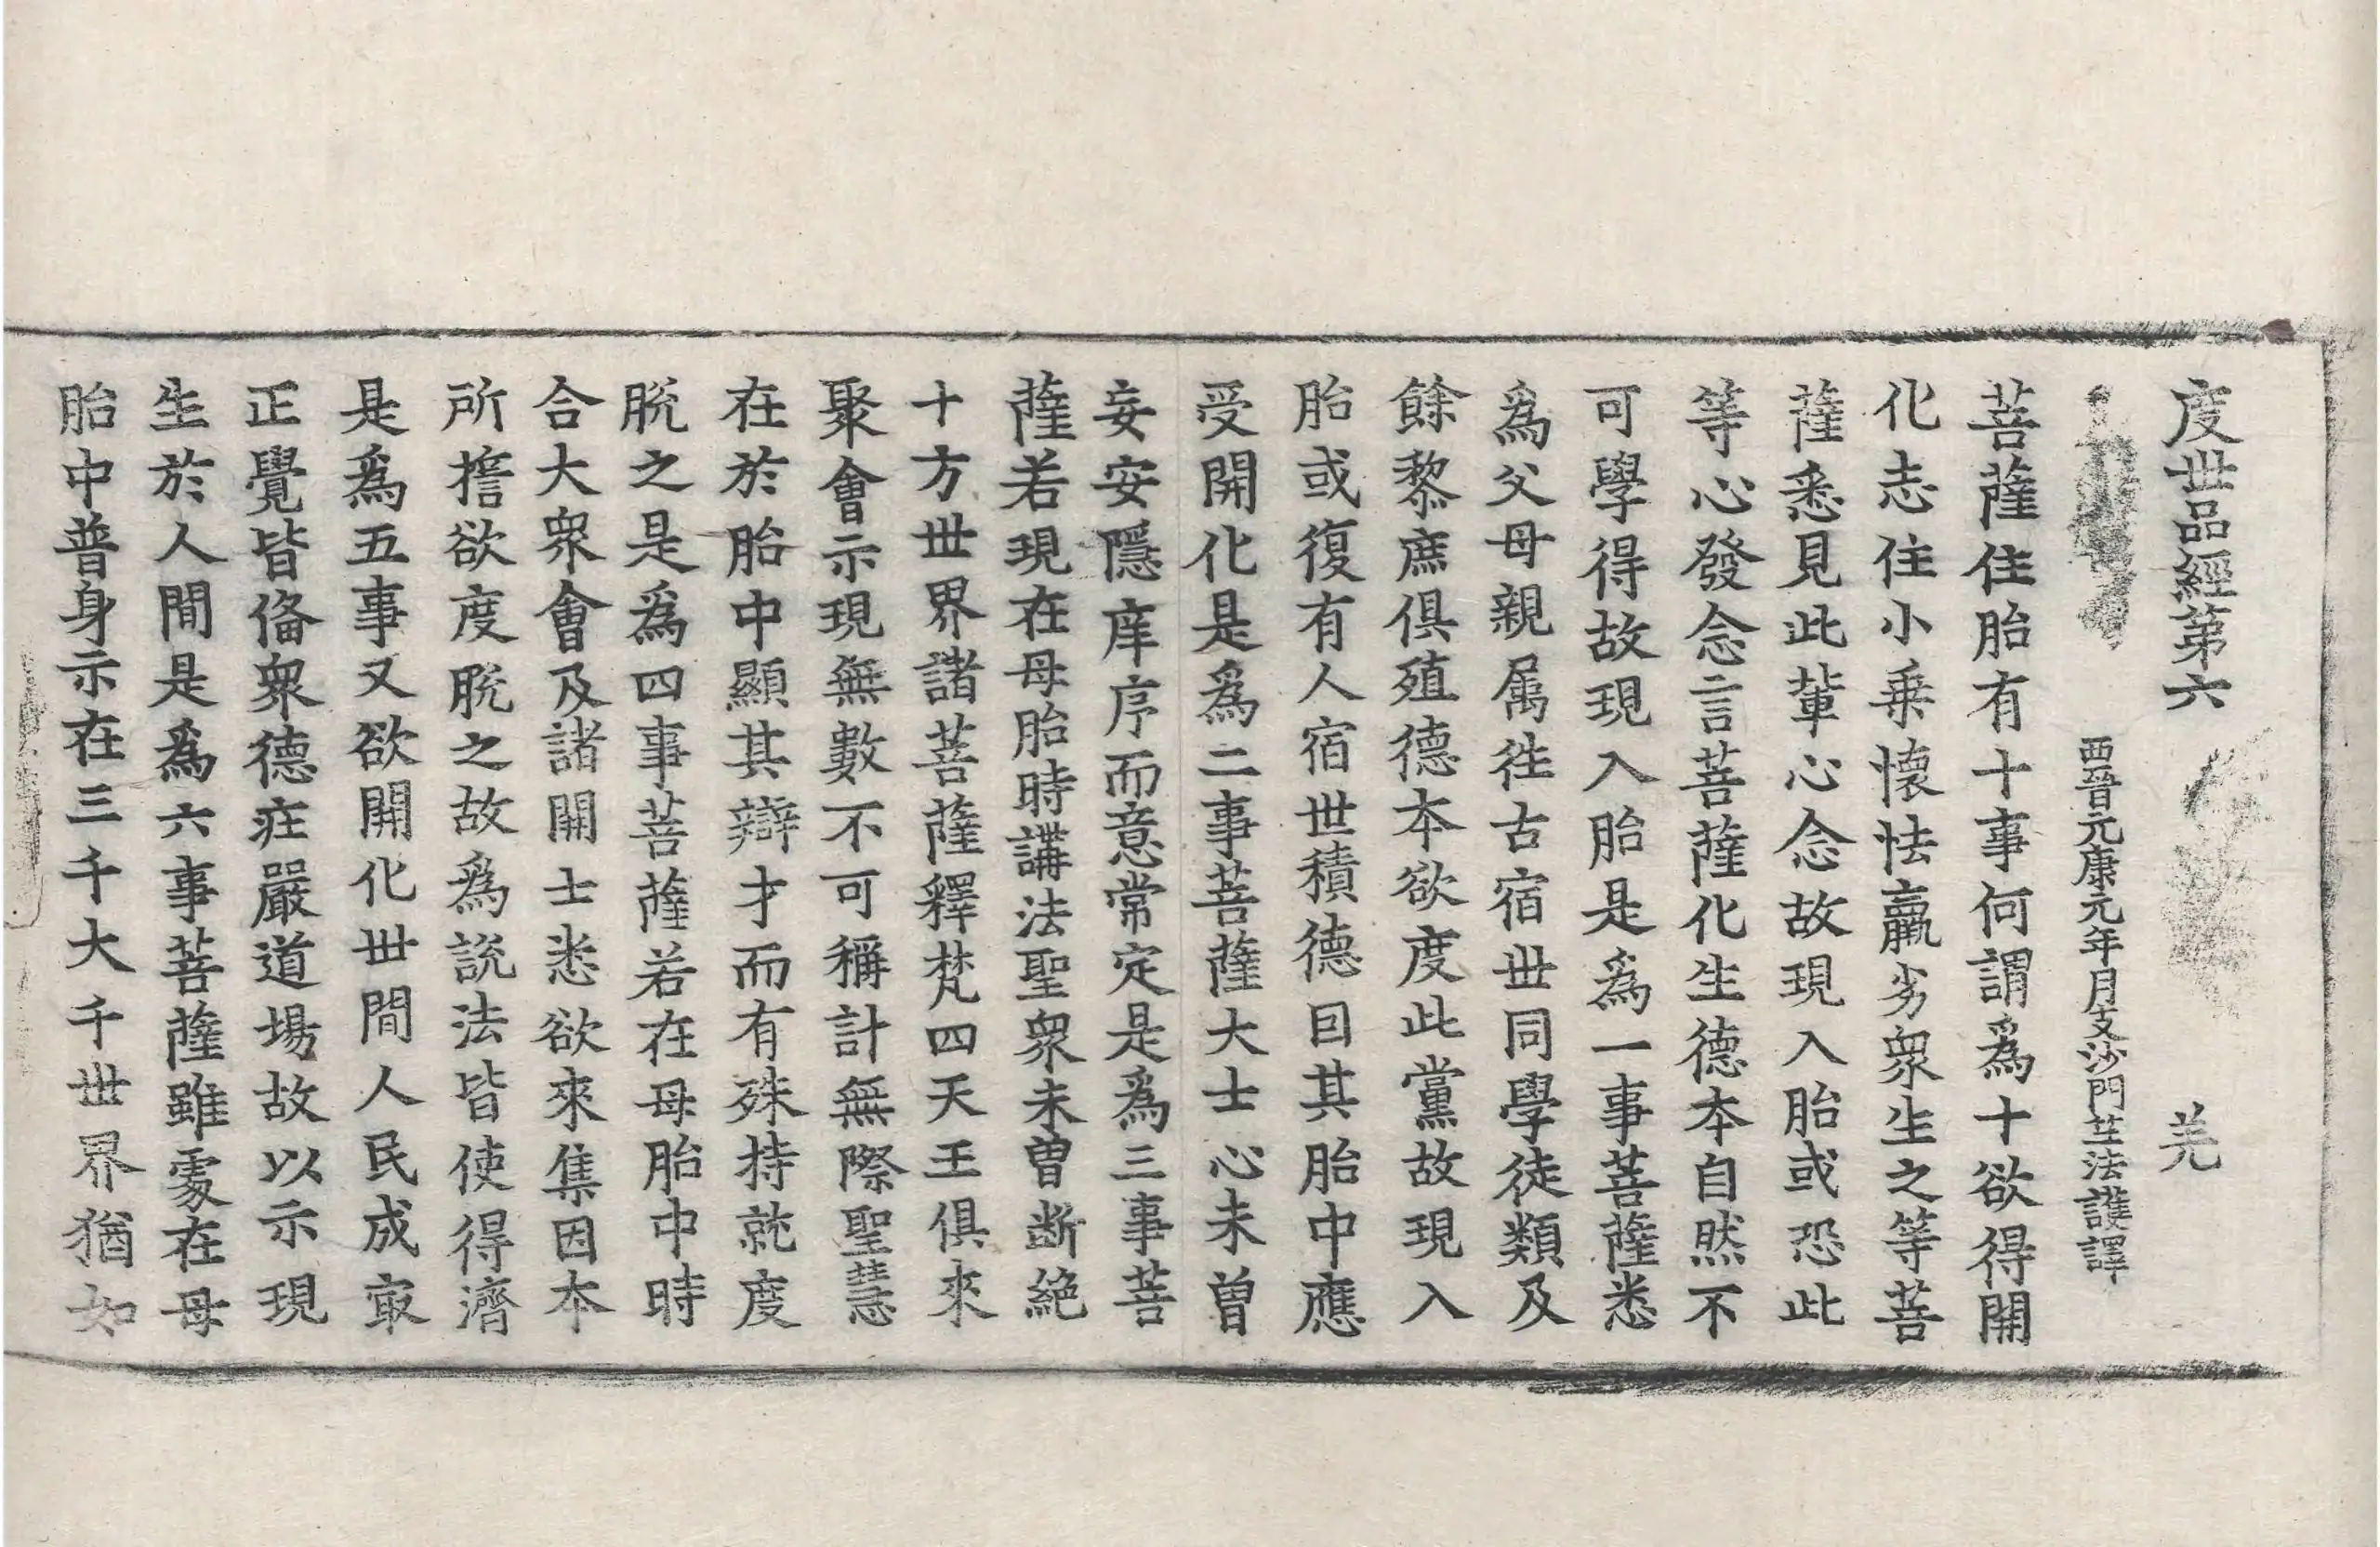 度世品經第六 羌
西晉元康元年月支沙門竺法護譯
菩薩住胎有十事何謂爲十欲得開
化志住小乗懷怯羸劣衆生之等菩
薩悉見此輩心念故現入胎或恐此
等心發念言菩薩化生德本自然不
可學得故現入胎是爲一事菩薩悉
爲父母親属徃古宿世同學徒類及
餘黎庶俱殖德本欲度此黨故現入
胎或復有人宿世積德囙其胎中應
受開化是爲二事菩薩大士心未曽
妄安隱庠序而意常定是爲三事菩
薩若現在母胎時講法聖衆未曽断絶
十方世界諸菩薩釋梵四天王俱來
聚會示現無數不可稱計無際聖慧
在於胎中顯其辯才而有殊持就度
脫之是爲四事菩薩若在母胎中時
合大衆會及諸開士悉欲來集因本
所擔欲度脫之故爲說法皆使得濟
是爲五事又欲開化世間人民成冣
正覺皆俻衆德莊嚴道場故以示現
生於人間是爲六事菩薩雖處在母
胎中普身示在三千大千世界猶如